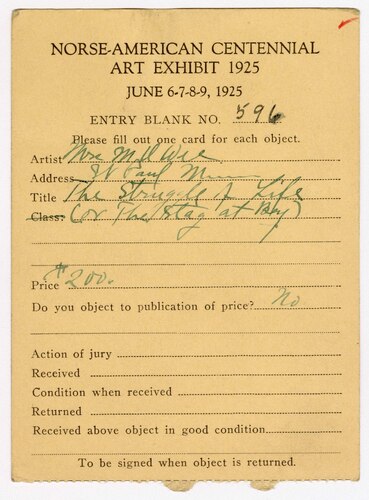 NORSE-AMERICAN CENTENNIAL
ART EXHIBIT 1925
JUNE 6-7-8-9, 1925
ENTRY BLANK NO. 596
Please fill out one card for each object.
Artist Mrs
Address St Paul Minn
Title The Struggle of Life
Class: (or The Stag at Bay)
Price $200.
Do you object to publication of price? no
Action of jury
Received
Condition when received
Returned
Received above object in good condition
To be signed when object is returned.